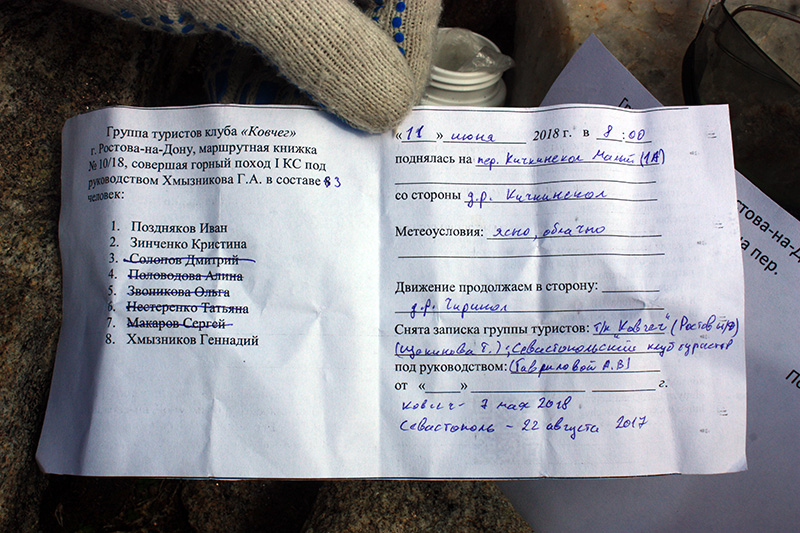 Группа туристов клуба «Ковчег»
г. Ростова-на-Дону, маршрутная книжка
№ 10/18, совершая горный поход I КС под
руководством Хмызникова Г.А. в составе 3
человек:
1. Поздняков Иван
2. Зинченко Кристина
3. Солопов Дмитрий
4. Половодова Алина
5. Звоникова Ольга
6. Нестеренко Татьяна
7. Макаров Сергей
8. Хмызников Геннадий
«11» июня 2018 г. в 8:00
поднялась на пер. Кичкинекол Малый (1А)
со стороны д.р. Кичкинекол
Метеоусловия: ясно, облачно
Движение продолжаем в сторону:
д.р. Чиринкол
Снята записка группы туристов: т/к Ковчег" (Ростов н/Д)
(Щекинова Т.); Севастопольский клуб туристов
под руководством: (Гавриловой А.В)
от « » г.
Ковчег - 7 мая 2018
Севастополь - 22 августа 2017
остова-на-Д
на пер.